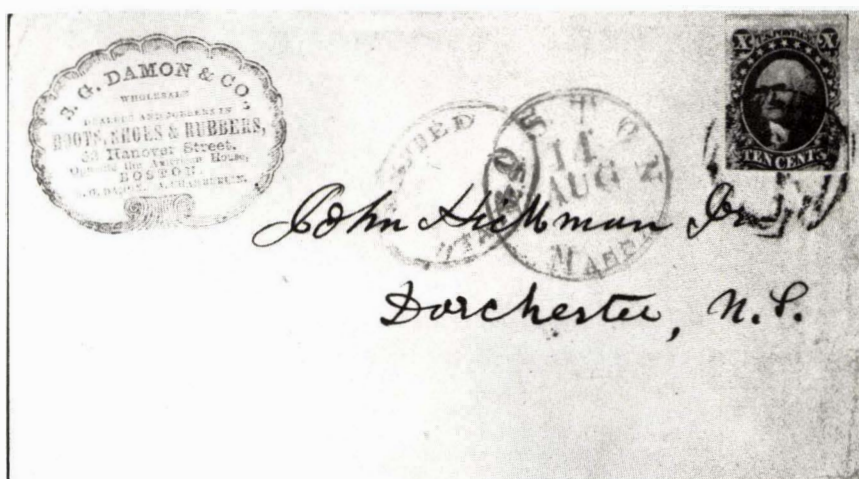 J. G. DAMON & CO.,
WHOLESALE
DEALERS AND JOBBERS IN
BOOTS, SHOES & RUBBERS,
Hanover Street.
Opposite the American House,
BOSTON.
X U.S. POSTAGE X
TEN CENTS
UNITED
STATES
BOSTON
14
AUG
MASS
John Hickman Jr.
Dorchester, N.S.